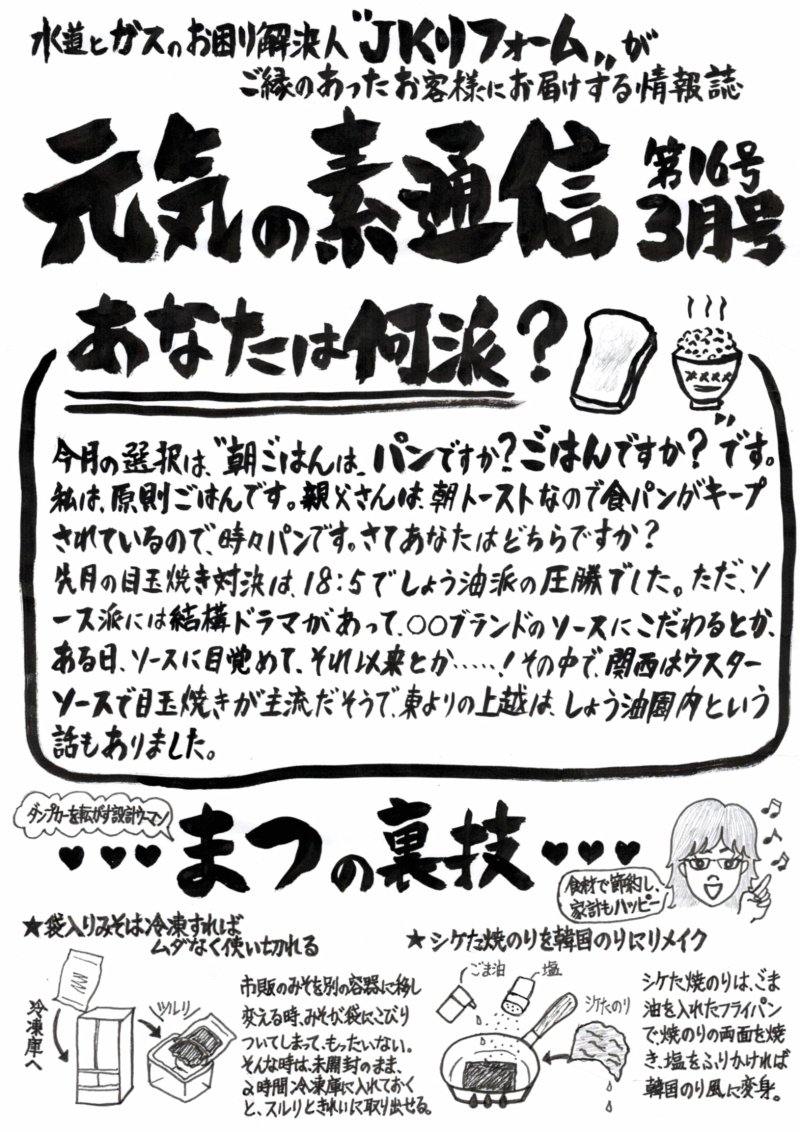 水道とガスのお困り解決人"JKリフォーム"が
ご縁のあったお客様にお届けする情報誌
元気の素通信
第16号
3月号
あなたは何派?
今月の選択は、"朝ごはんは、パンですか?ごはんですか?"です。
私は、原則ごはんです。親父さんは、朝トーストなので食パンがキープ
されているので、時々パンです。さてあなたはどちらですか?
先月の目玉焼き対決は、18:5でしょう油派の圧勝でした。ただ、ソ
ース派には結構ドラマがあって、○○ブランドのソースにこだわるとか、
ある日、ソースに目覚めて、それ以来とか……!その中で、関西はウスター
ソースで目玉焼きが主流だそうで、東よりの上越は、しょう油圏内という
話もありました。
ダンプカーを転がす設計ウーマン
♥♥♥まつの裏技♥♥♥
食材で節約し、
家計もハッピー
★袋入りみそは冷凍すれば
ムダなく使い切れる
冷凍庫へ
ツルリ
市販のみそを別の容器に移し
変える時、みそが袋にこびり
ついてしまって、もったいない。
そんな時は、未開封のまま、
2時間冷凍庫に入れておく
と、スルりときれいに取り出せる。
★シケた焼のりを韓国のりにリメイク
ごま油
塩
シケたのり
シケた焼のりは、ごま
油を入れたフライパン
で、焼のりの両面を焼
き、塩をふりかければ
韓国のり風に変身。